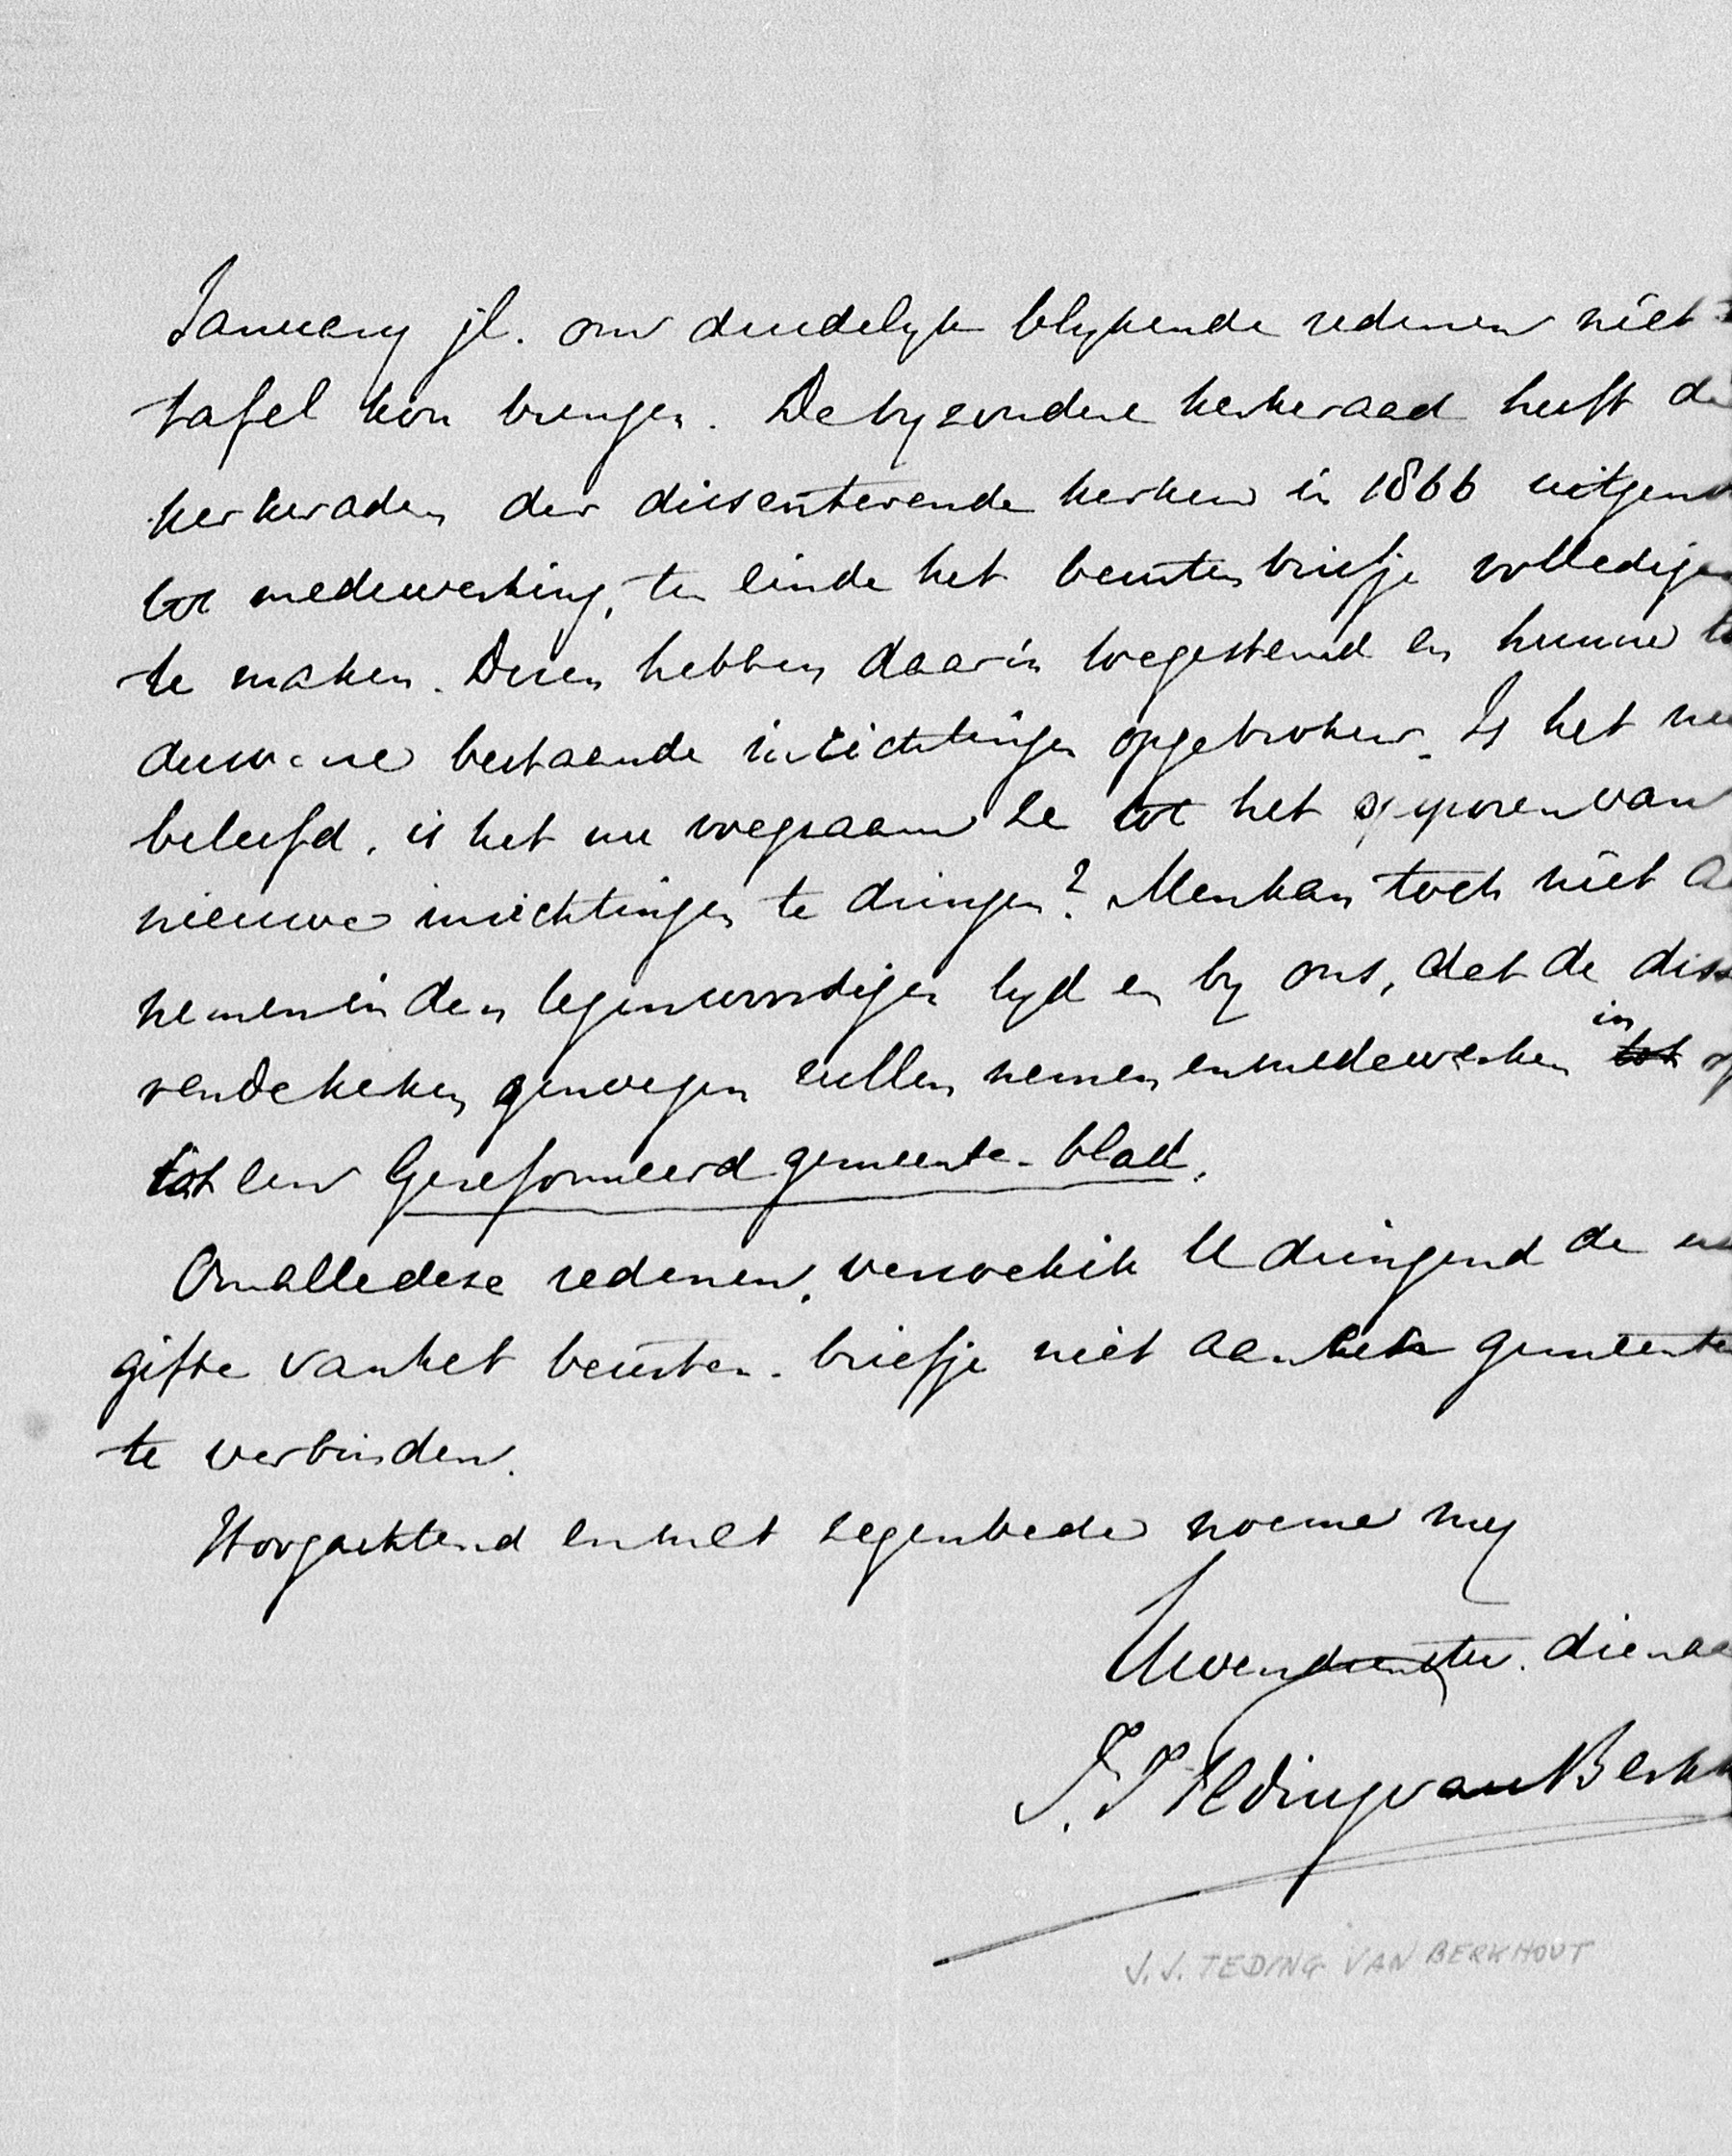 January jl. om duidelyk blykende redenen niet
tafel kon brengen. De byzondere kerkeraad heeft de
kerkeraden der dissenterende kerken in 1866 uitgeno
tot medewerking, ten einde het beurtenbriefje vollediger
te maken. Dezen hebben daarin toegestemd en hunne to
dusverre bestaande inrichtingen opgebroken. Is het nu
beleefd, is het nu voegzaam ze tot het opsporen van
nieuwe inrichtingen te dringen? Men kan toch niet aa
nemen in den tegenwoordigen tyd en by ons, dat de disse
rende kerken genoegen zullen nemen en medewerken in
tot een Gereformeerd gemeente-blad.
Om alle deze redenen, verzoek ik U dringend de
gifte van het beurten-briefje niet aan het gemeente
te verbinden.
Hoogachtend en met zegenbede noeme my
Uwen dienaa
J. J. Teding van Berkh
J.J. TEDING VAN BERKHOUT